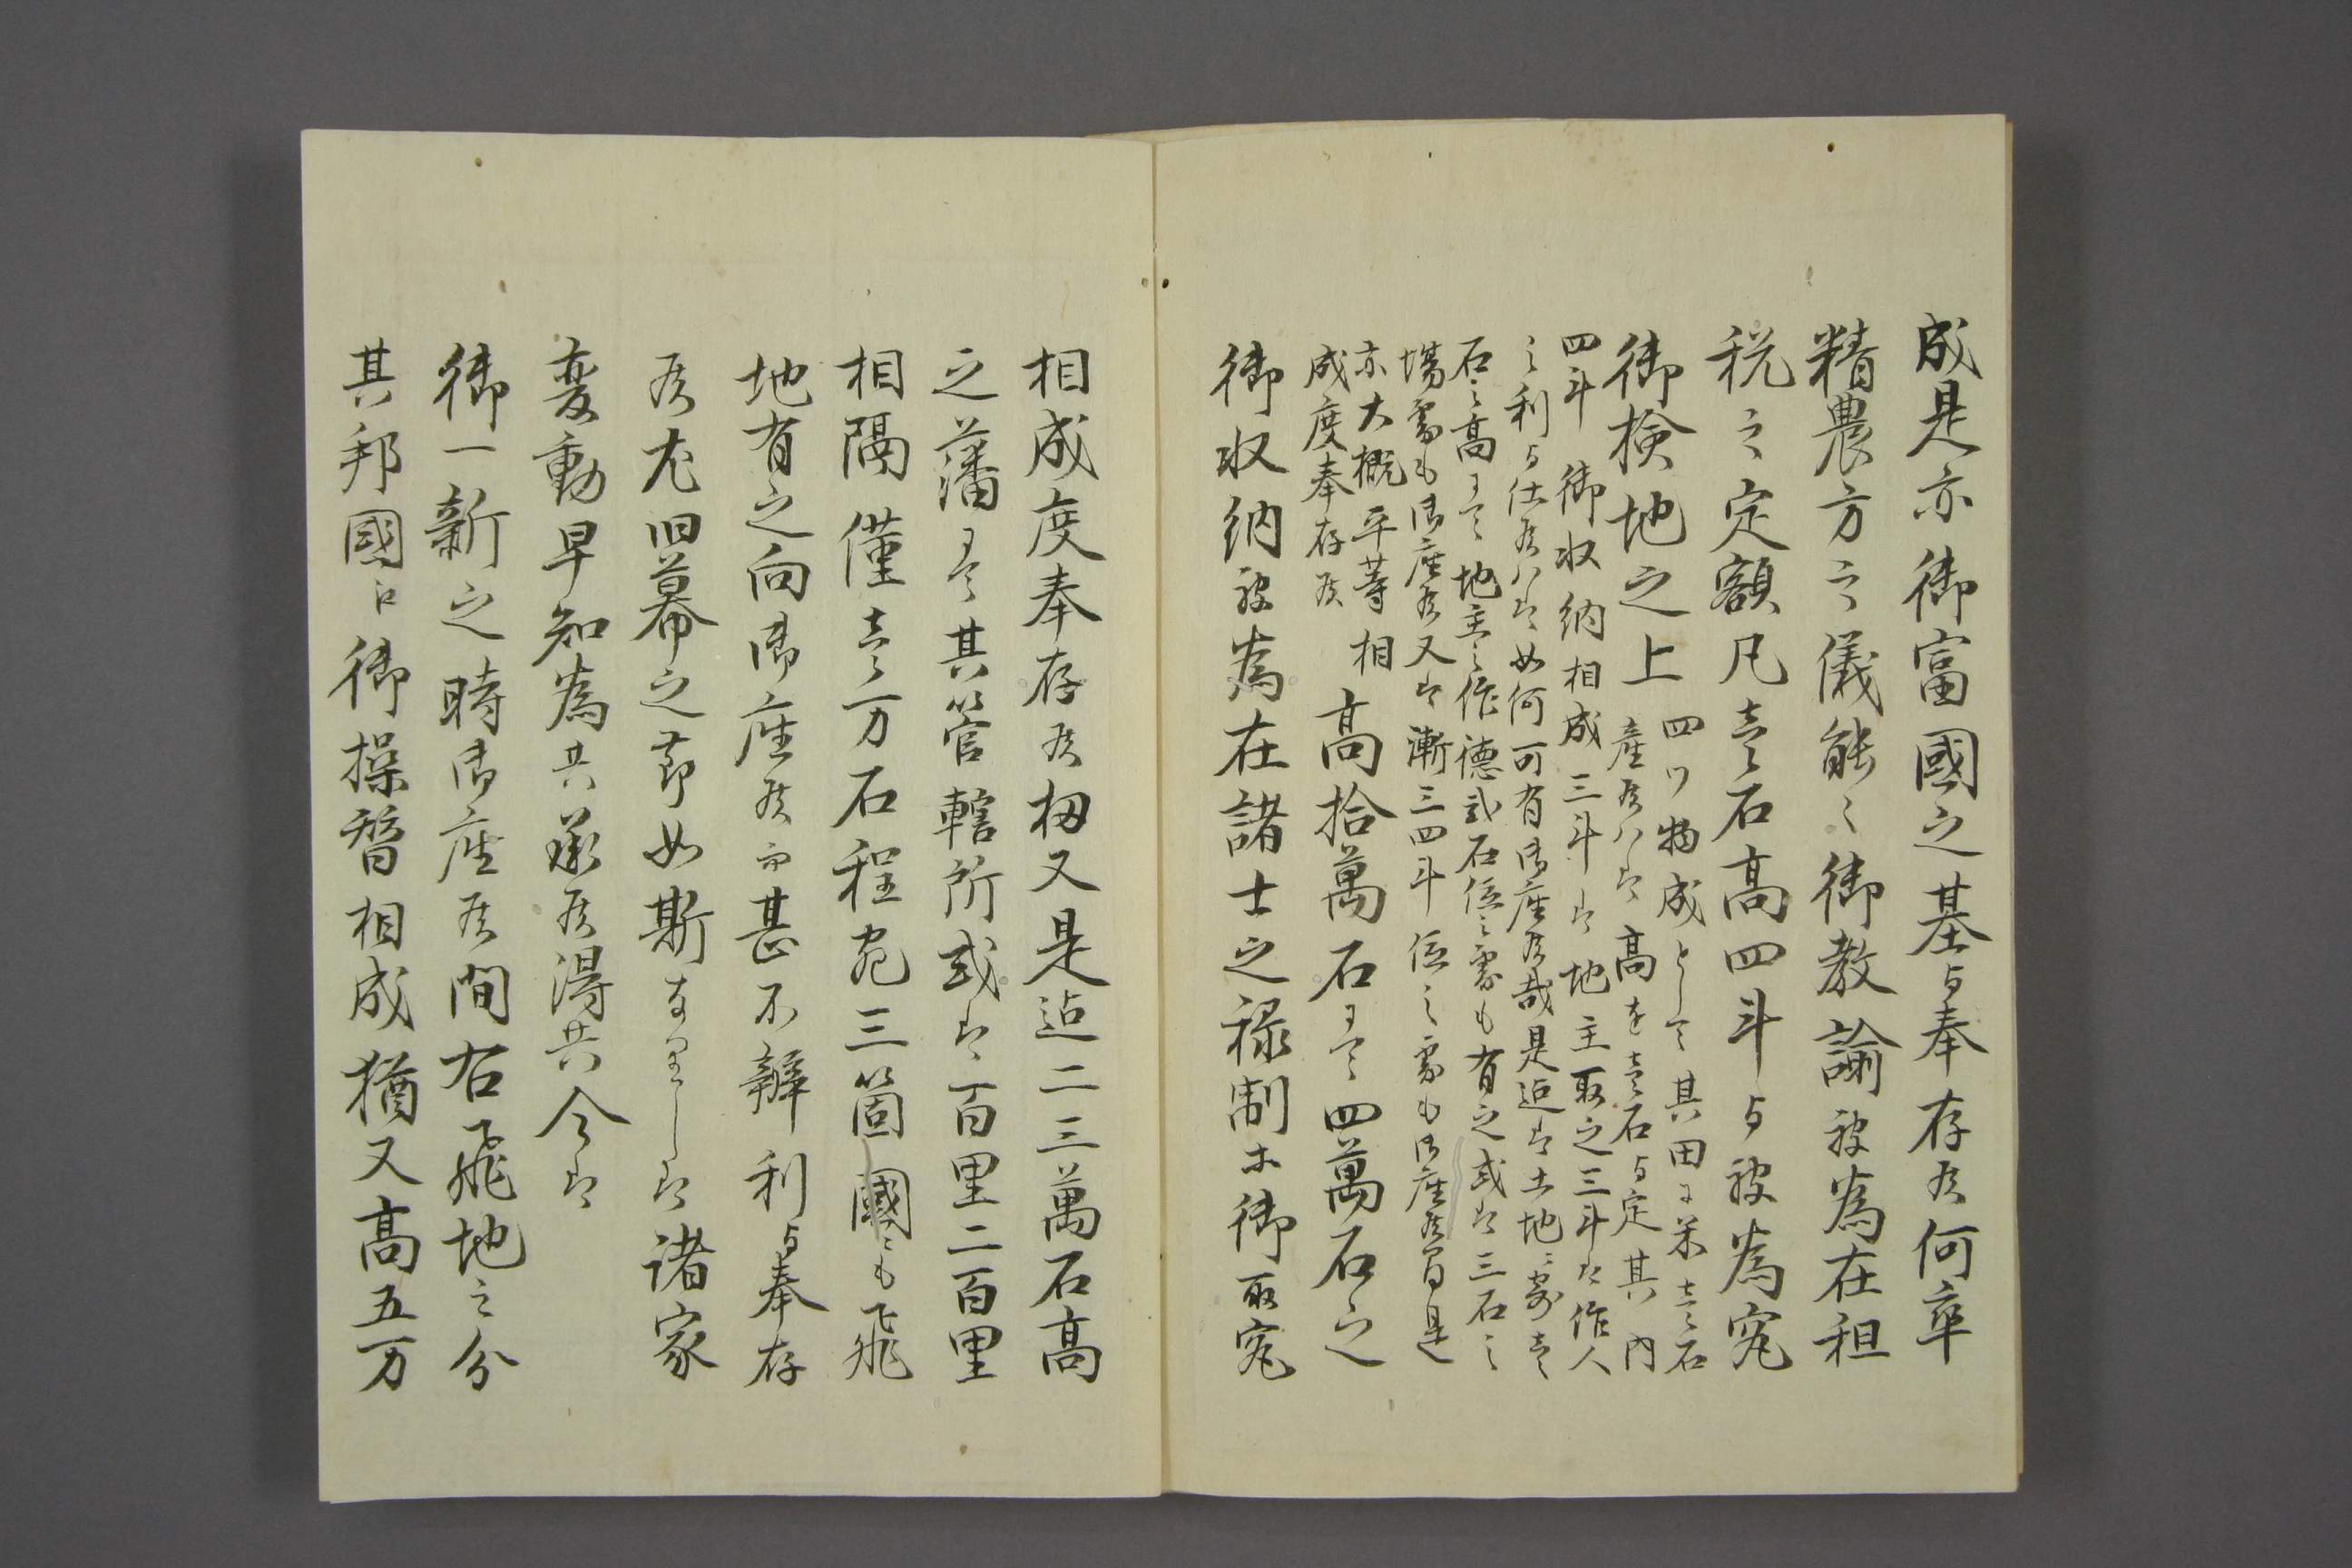 成是亦御富國之基与奉存候何卒
精農方之儀能々御教諭被為在租
税之定額凡壱石高四斗与被為究
御検地之上
四ツ物成として其田ニ米壱石
産候ハヽ高を壱石与定其内
四斗御収納相成三斗ハ地主取之三斗ハ作人
之利与仕候ハヽ如何可有御座候哉是迄ハ土地ニ寄壱
石之高ニて地主之作徳弐石位之処も有之或ハ三石之
場処も御座候又ハ漸三四斗位之処も御座候間是
亦大概平等相
成度奉存候
高拾萬石ニて四萬石之
御収納被為在諸士之禄制等御取究
相成度奉存候扨又是迄二三萬石高
之藩ニて其管轄所或ハ百里二百里
相隔僅壱万石程宛三箇國ニも飛
地有之向御座候而甚不辨利与奉存
候尤旧幕之節如斯なりしハ諸家
変動早知為共承候得共今ハ
御一新之時御座候間右飛地之分
其邦國口御操替相成猶又高五万